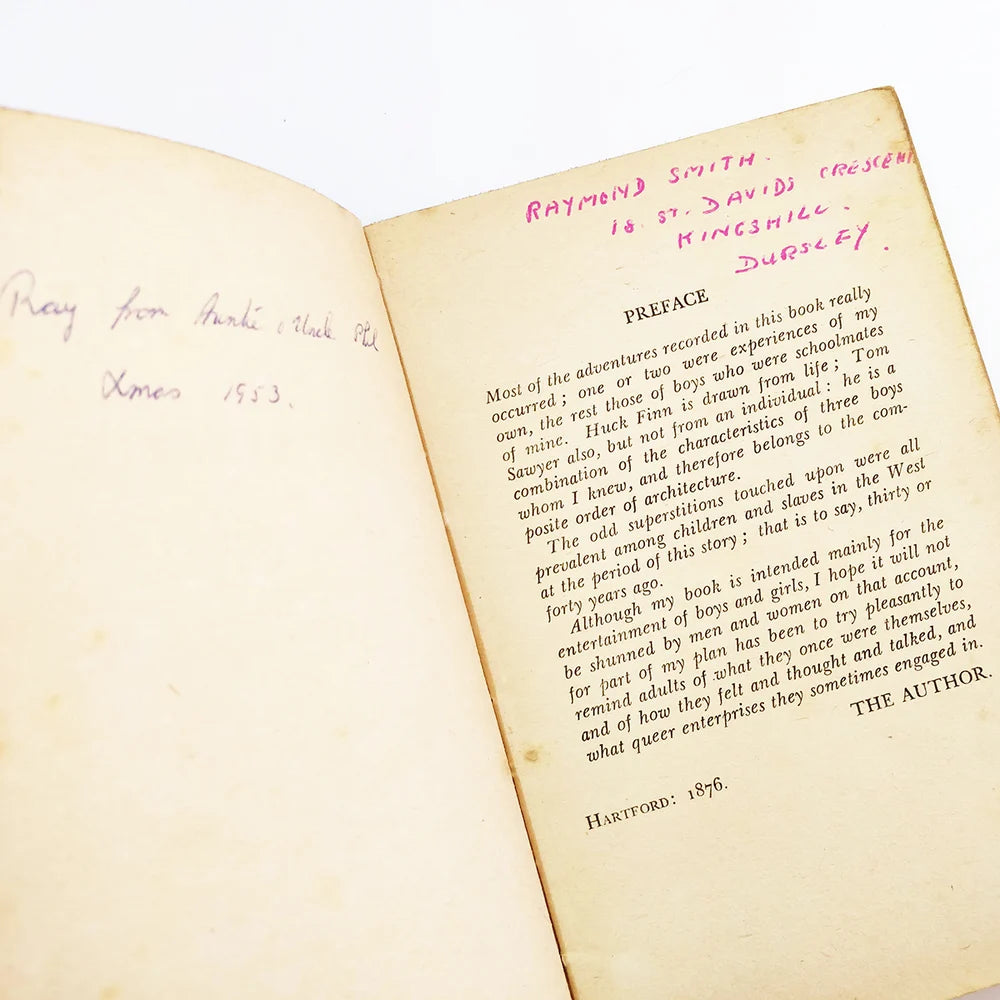 Ray from Auntie & Uncle Phil
Xmas 1953.
RAYMOND SMITH.
18 ST. DAVIDS CRESCENT
KINGSHILL.
DURSLEY.
PREFACE
Most of the adventures recorded in this book really
occurred; one or two were experiences of my
own, the rest those of boys who were schoolmates
of mine. Huck Finn is drawn from life; Tom
Sawyer also, but not from an individual: he is a
combination of the characteristics of three boys
whom I knew, and therefore belongs to the com-
posite order of architecture.
The odd superstitions touched upon were all
prevalent among children and slaves in the West
at the period of this story; that is to say, thirty or
forty years ago.
Although my book is intended mainly for the
entertainment of boys and girls, I hope it will not
be shunned by men and women on that account,
for part of my plan has been to try pleasantly to
remind adults of what they once were themselves,
and of how they felt and thought and talked, and
what queer enterprises they sometimes engaged in.
THE AUTHOR.
HARTFORD: 1876.